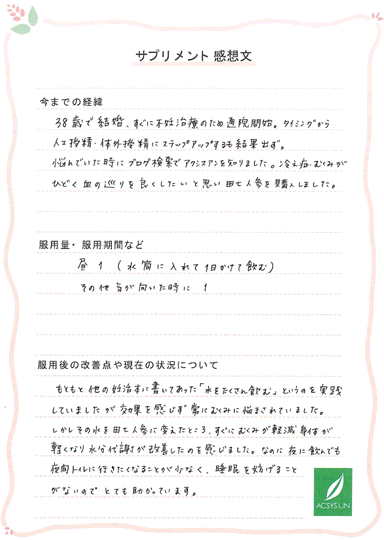 サプリメント 感想文
今までの経緯
38歳で結婚、すぐに不妊治療のため通院開始。タイミングから
人工授精・体外授精にステップアップするも結果出ず。
悩んでいた時にブログ検索でアクシスアンを知りました。冷え症・むくみが
ひどく血の巡りを良くしたいと思い田七人参を購入しました。
服用量・服用期間など
昼 1 (水筒に入れて1日かけて飲む)
その他 気が向いた時に 1
服用後の改善点や現在の状況について
もともと他の妊活本に書いてあった「水をたくさん飲む」というのを実践
していましたが効果を感じず常にむくみに悩まされていました。
しかしその水を田七人参に変えたところ、すぐにむくみが軽減 身体が
軽くなり水分代謝が改善したのを感じました。なのに夜に飲んでも
夜間トイレに行きたくなることが少なく、睡眠を妨げること
がないのでとても助かっています。
ACSYSLIN